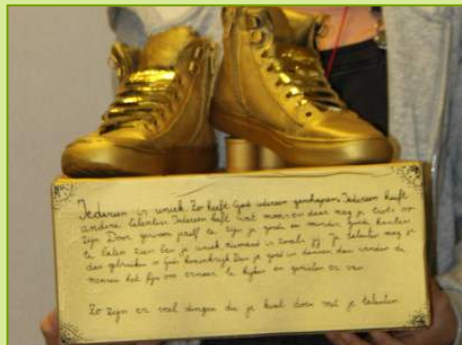 Iedereen is uniek. Zo heeft God iedereen geschapen. Iedereen heeft
andere talenten. Iedereen heeft wat moois en daar mag je trots op
zijn. Door gewoon jezelf te zijn je goede en minder goede kanten
te laten zien ben je uniek niemand is zoals jij. Je talenten mag je
dan gebruiken in Gods Koninkrijk. Ben je goed in dansen dan vinden de
mensen het fijn om ernaar te kijken en genieten er van.
Zo zijn er veel dingen die je kunt doen met je talenten.